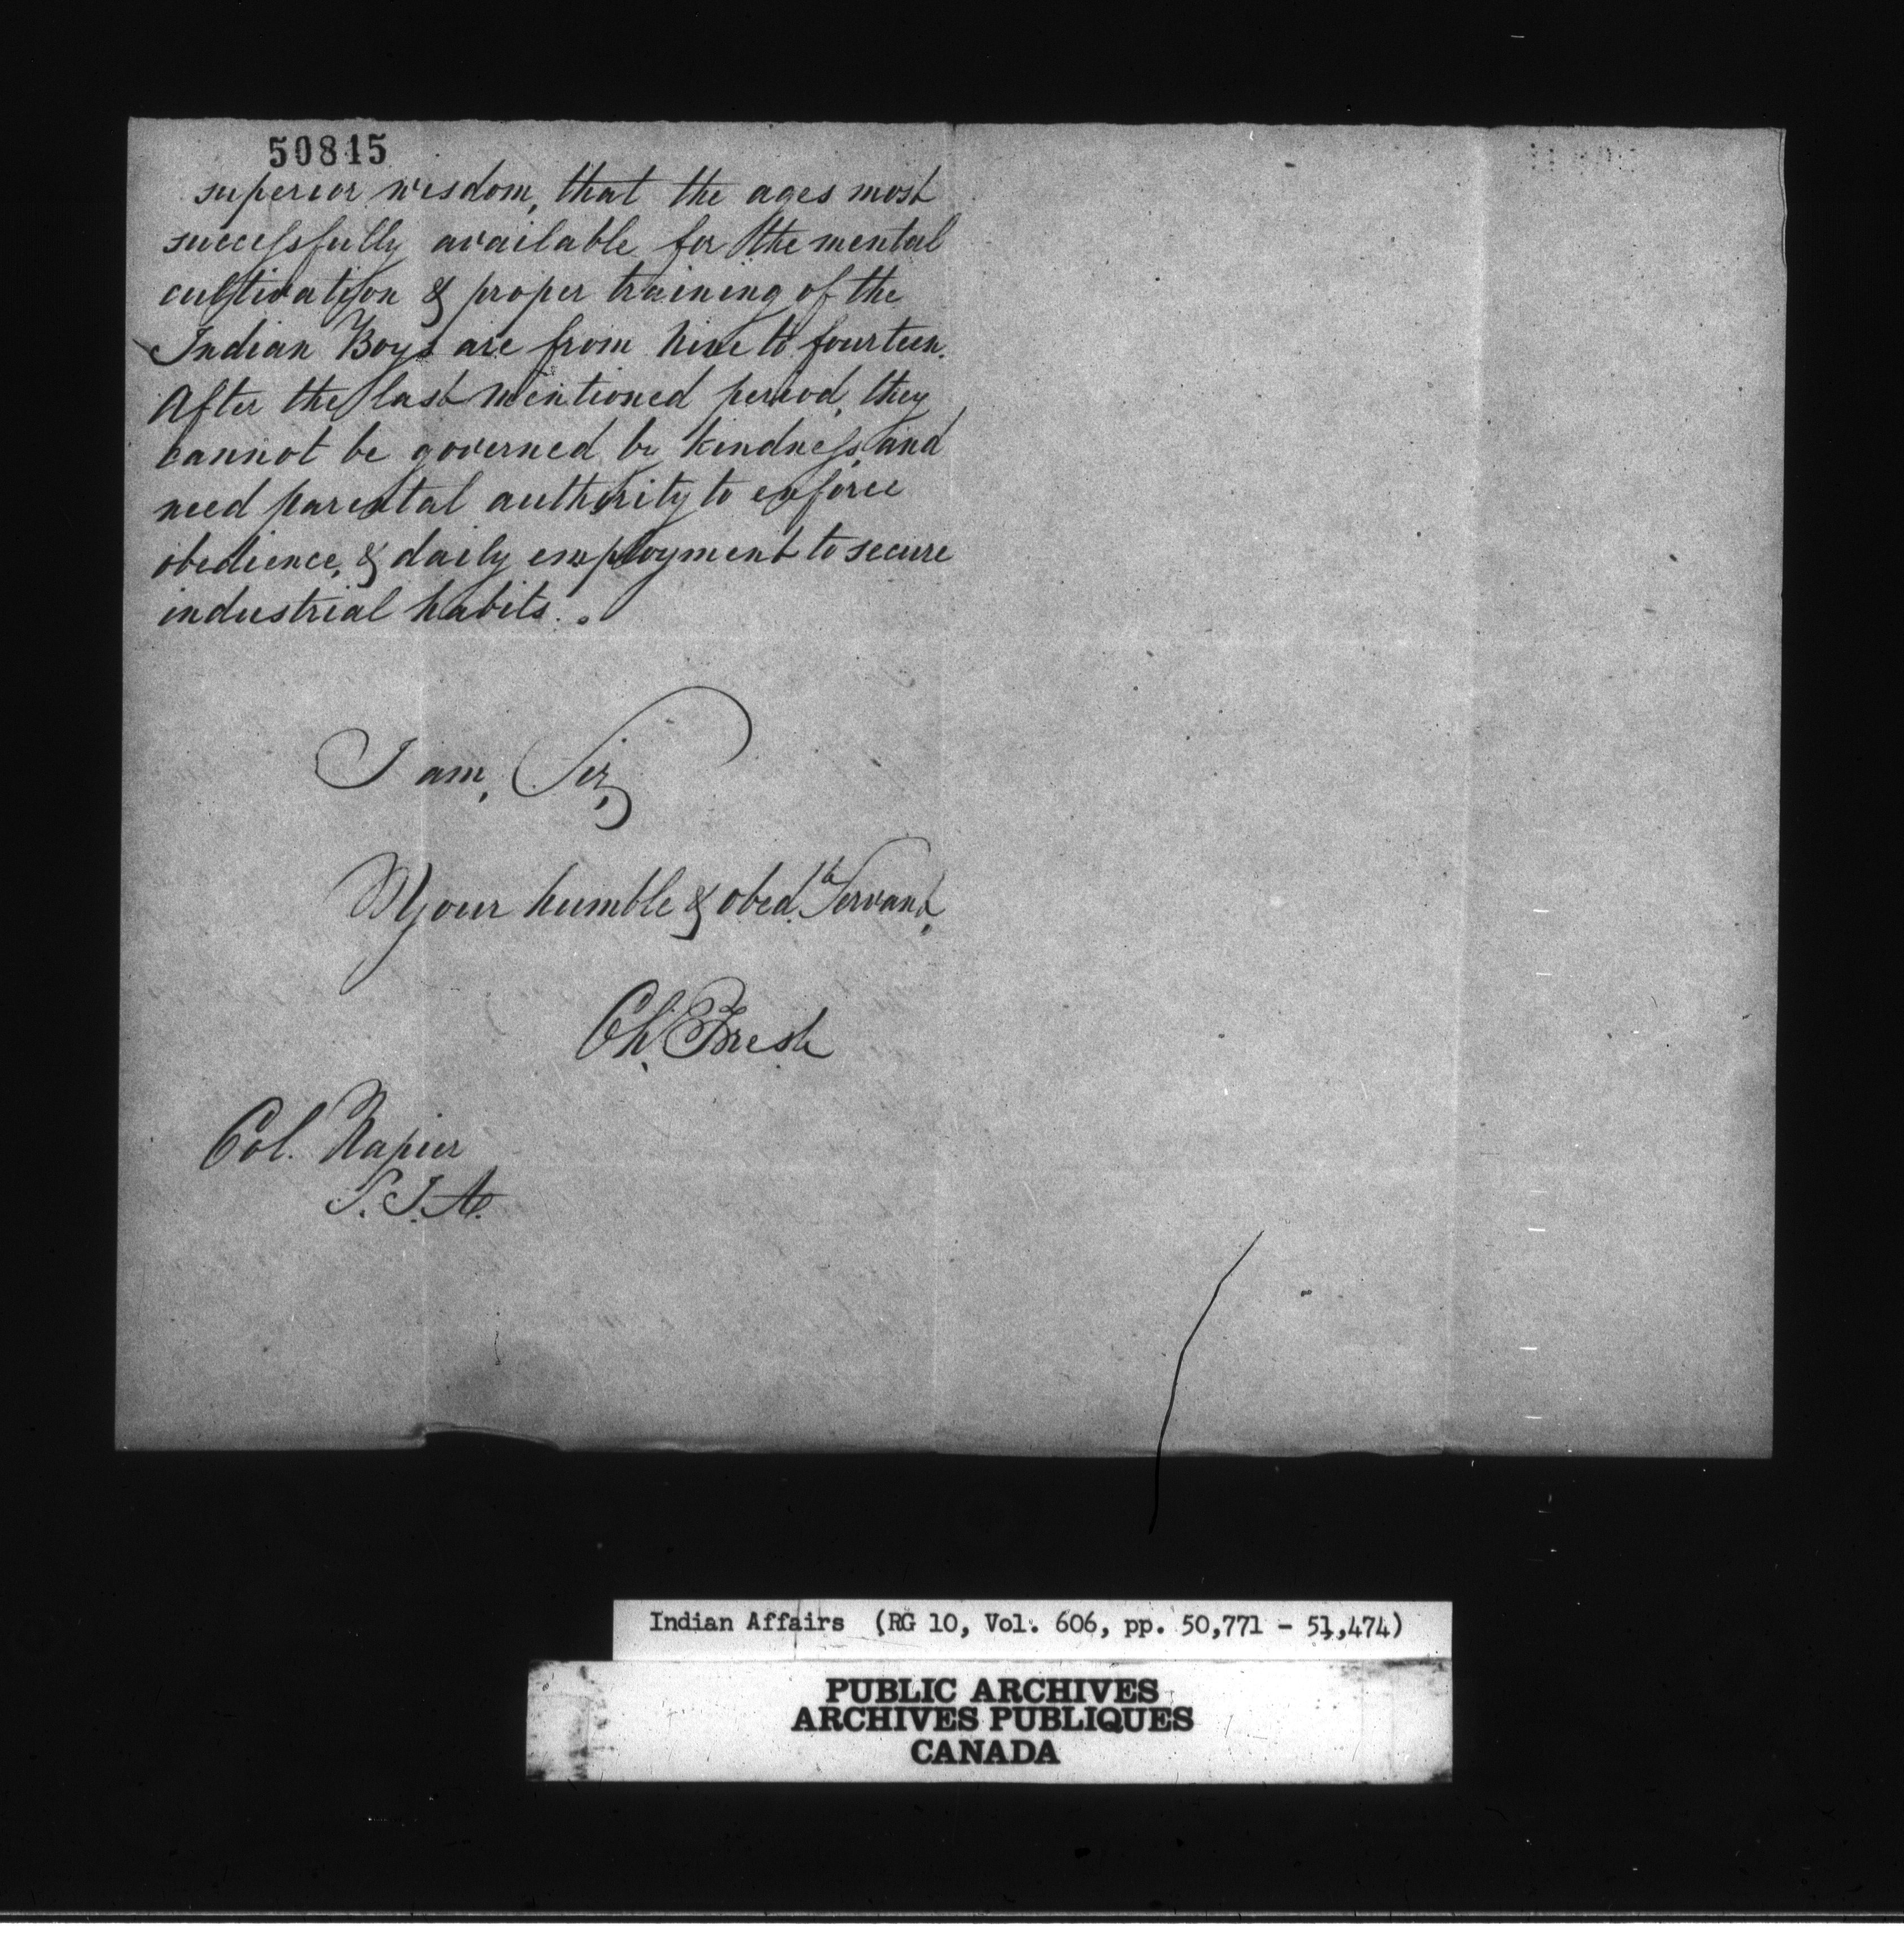 50815
superior wisdom, that the ages most
successfully available for the mental
cultivation & proper training of the
Indian Boys are from nine to fourteen.
After the last mentioned period, they
cannot be governed by kindness, and
need parental authority to enforce
obedience, & daily employment to secure
industrial habits.
I am, Sir,
Your humble & obed.t Servant,
Ch.
Col. Napier
S.I.A.
Indian Affairs (RG 10, Vol. 606, pp. 50,771 - 51,474)
PUBLIC ARCHIVES
ARCHIVES PUBLIQUES
CANADA